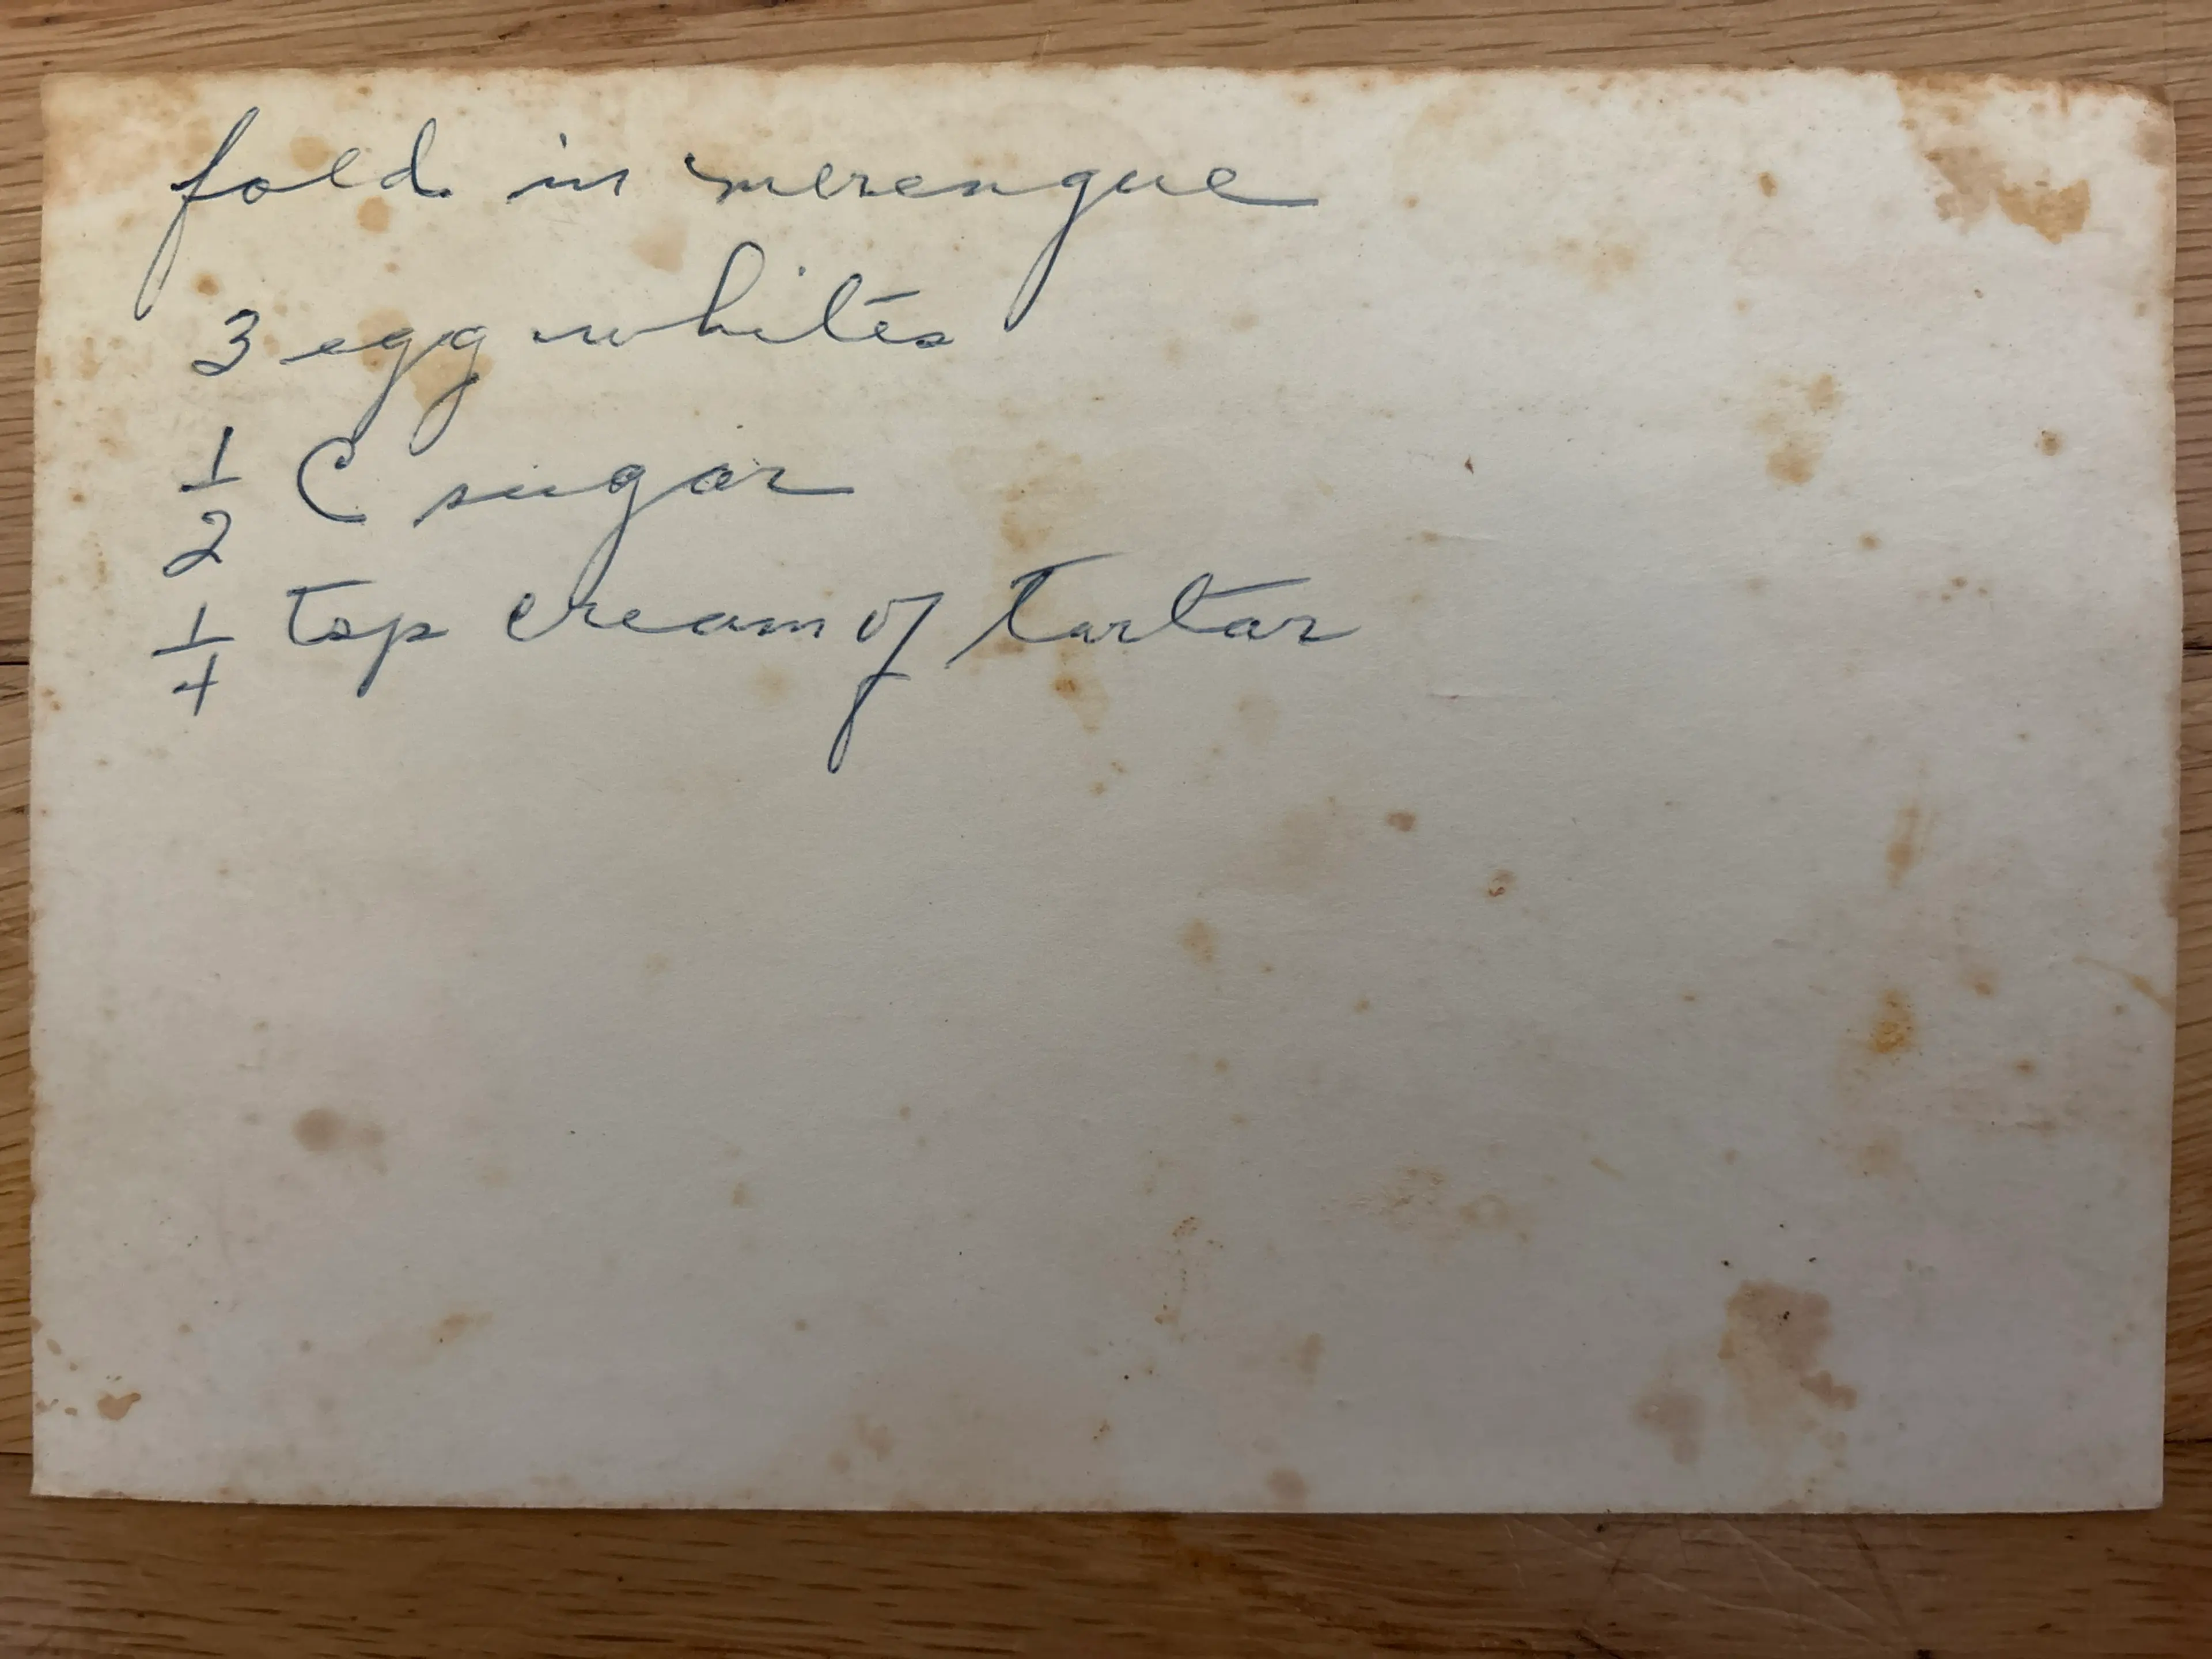 fold in merengue
3 egg whites
1/2 C sugar
1/4 tsp cream of tartar